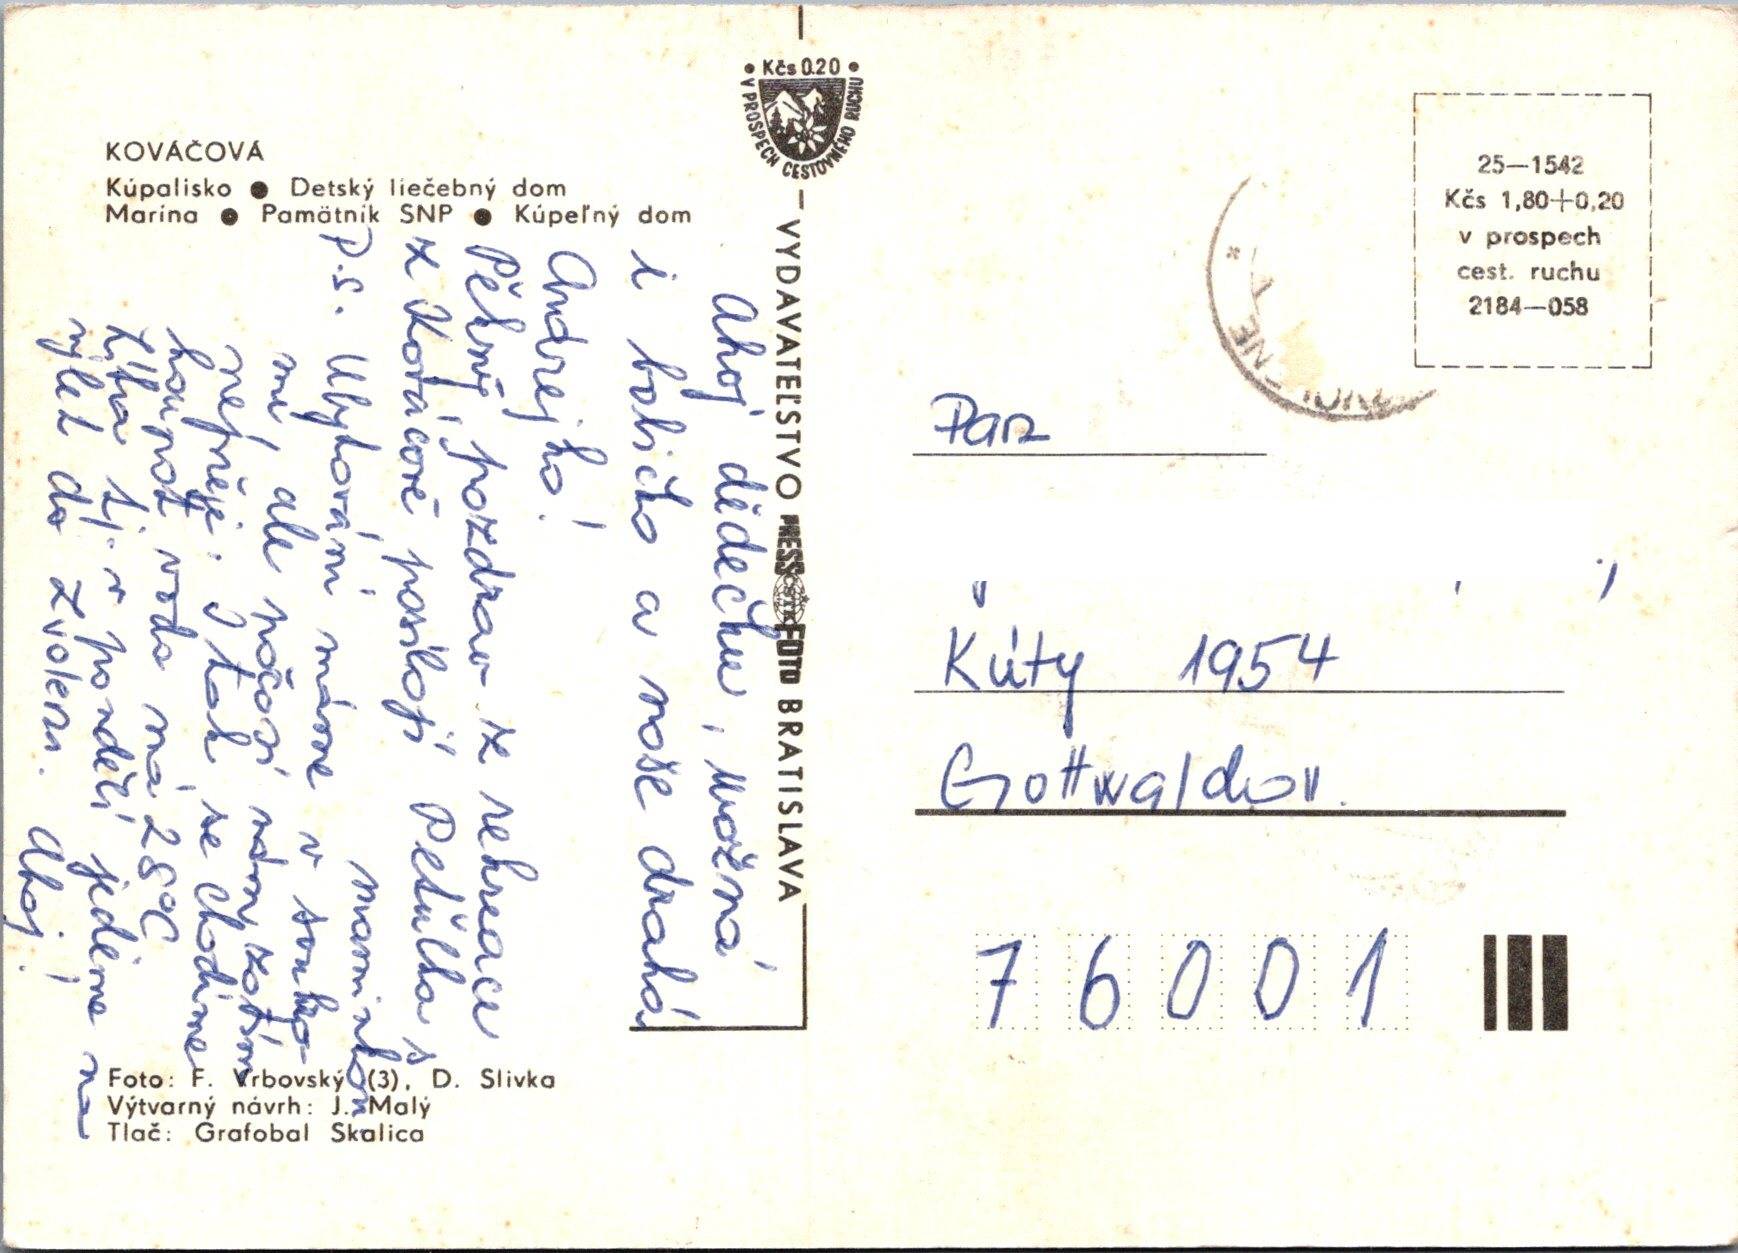 KOVÁČOVÁ
Kúpalisko ● Detský liečebný dom
Marína ● Pamätník SNP ● Kúpeľný dom
Ahoj dědečku, možná
i bolíčko a naše drahá
Andrejko!
Pěkný pozdrav z rekreace
z Kováčové posílají Petulka s
maminkou
P.S. Ubytování máme v soukro-
mí, ale počasí nám zatím
nepřeje, tak se chodíme
koupat, voda má 28°C
Zítra tj. v pondělí jedeme na
výlet do Zvolena. Ahoj!
Foto: F. Vrbovský (3), D. Slivka
Výtvarný návrh: J. Malý
Tlač: Grafobal Skalica
• Kčs 0.20 •
V PROSPECH CESTOVNÉHO RUCHU
VYDAVATEĽSTVO PRESSFOTO BRATISLAVA
ČSTK
25—1542
Kčs 1,80+0,20
v prospech
cest. ruchu
2184—058
Pan
Kúty 1954
Gottwaldov.
76001